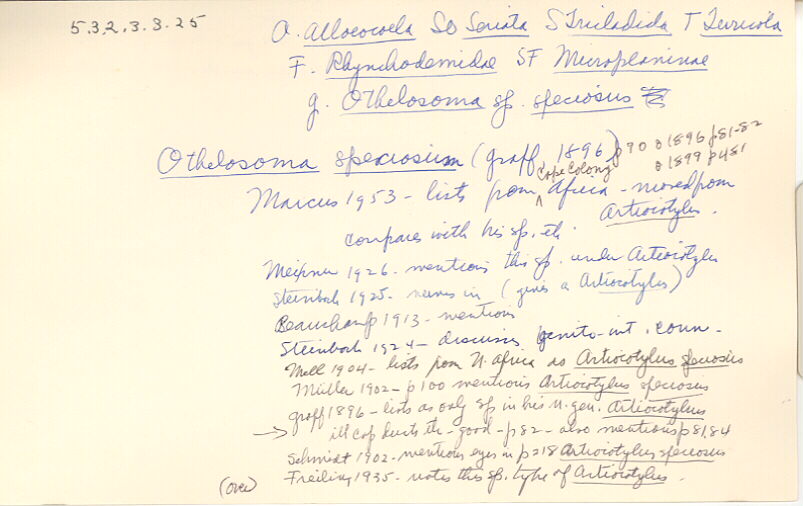 5.3.2.3.3.25
O. Alloeocoela SO Seriata S Tricladida T Terricola
F. Rhynchodemidae SF Microplaninae
g. Othelosoma sp. speciosus
Othelosoma speciosum (Graff 1896) p90 o 1896 p81-82
o 1899 p481
Cape Colony
Marcus 1953 - lists from Africa - moved from
Artiocotylus.
compares with his sp. etc.
Meixner 1926 - mentions this sp. under Artiocotylus
Steinböck 1925 - nerves in (gives a Artiocotylus)
Beauchamp 1913 - mentions
Steinböck 1924 - discusses genito-int. conn.
Mell 1904 - lists from N. Africa as Artiocotylus speciosus
Müller 1902 - p100 mentions Artiocotylus speciosus
Graff 1896 - lists as only sp in his n. gen. Artiocotylus
→ ill cop ducts etc - good - p82 - also mentions p81,84
Schmidt 1902 - mentions eyes in p218 Artiocotylus speciosus
Freiling 1935 - notes this sp. type of Artiocotylus.
(over)